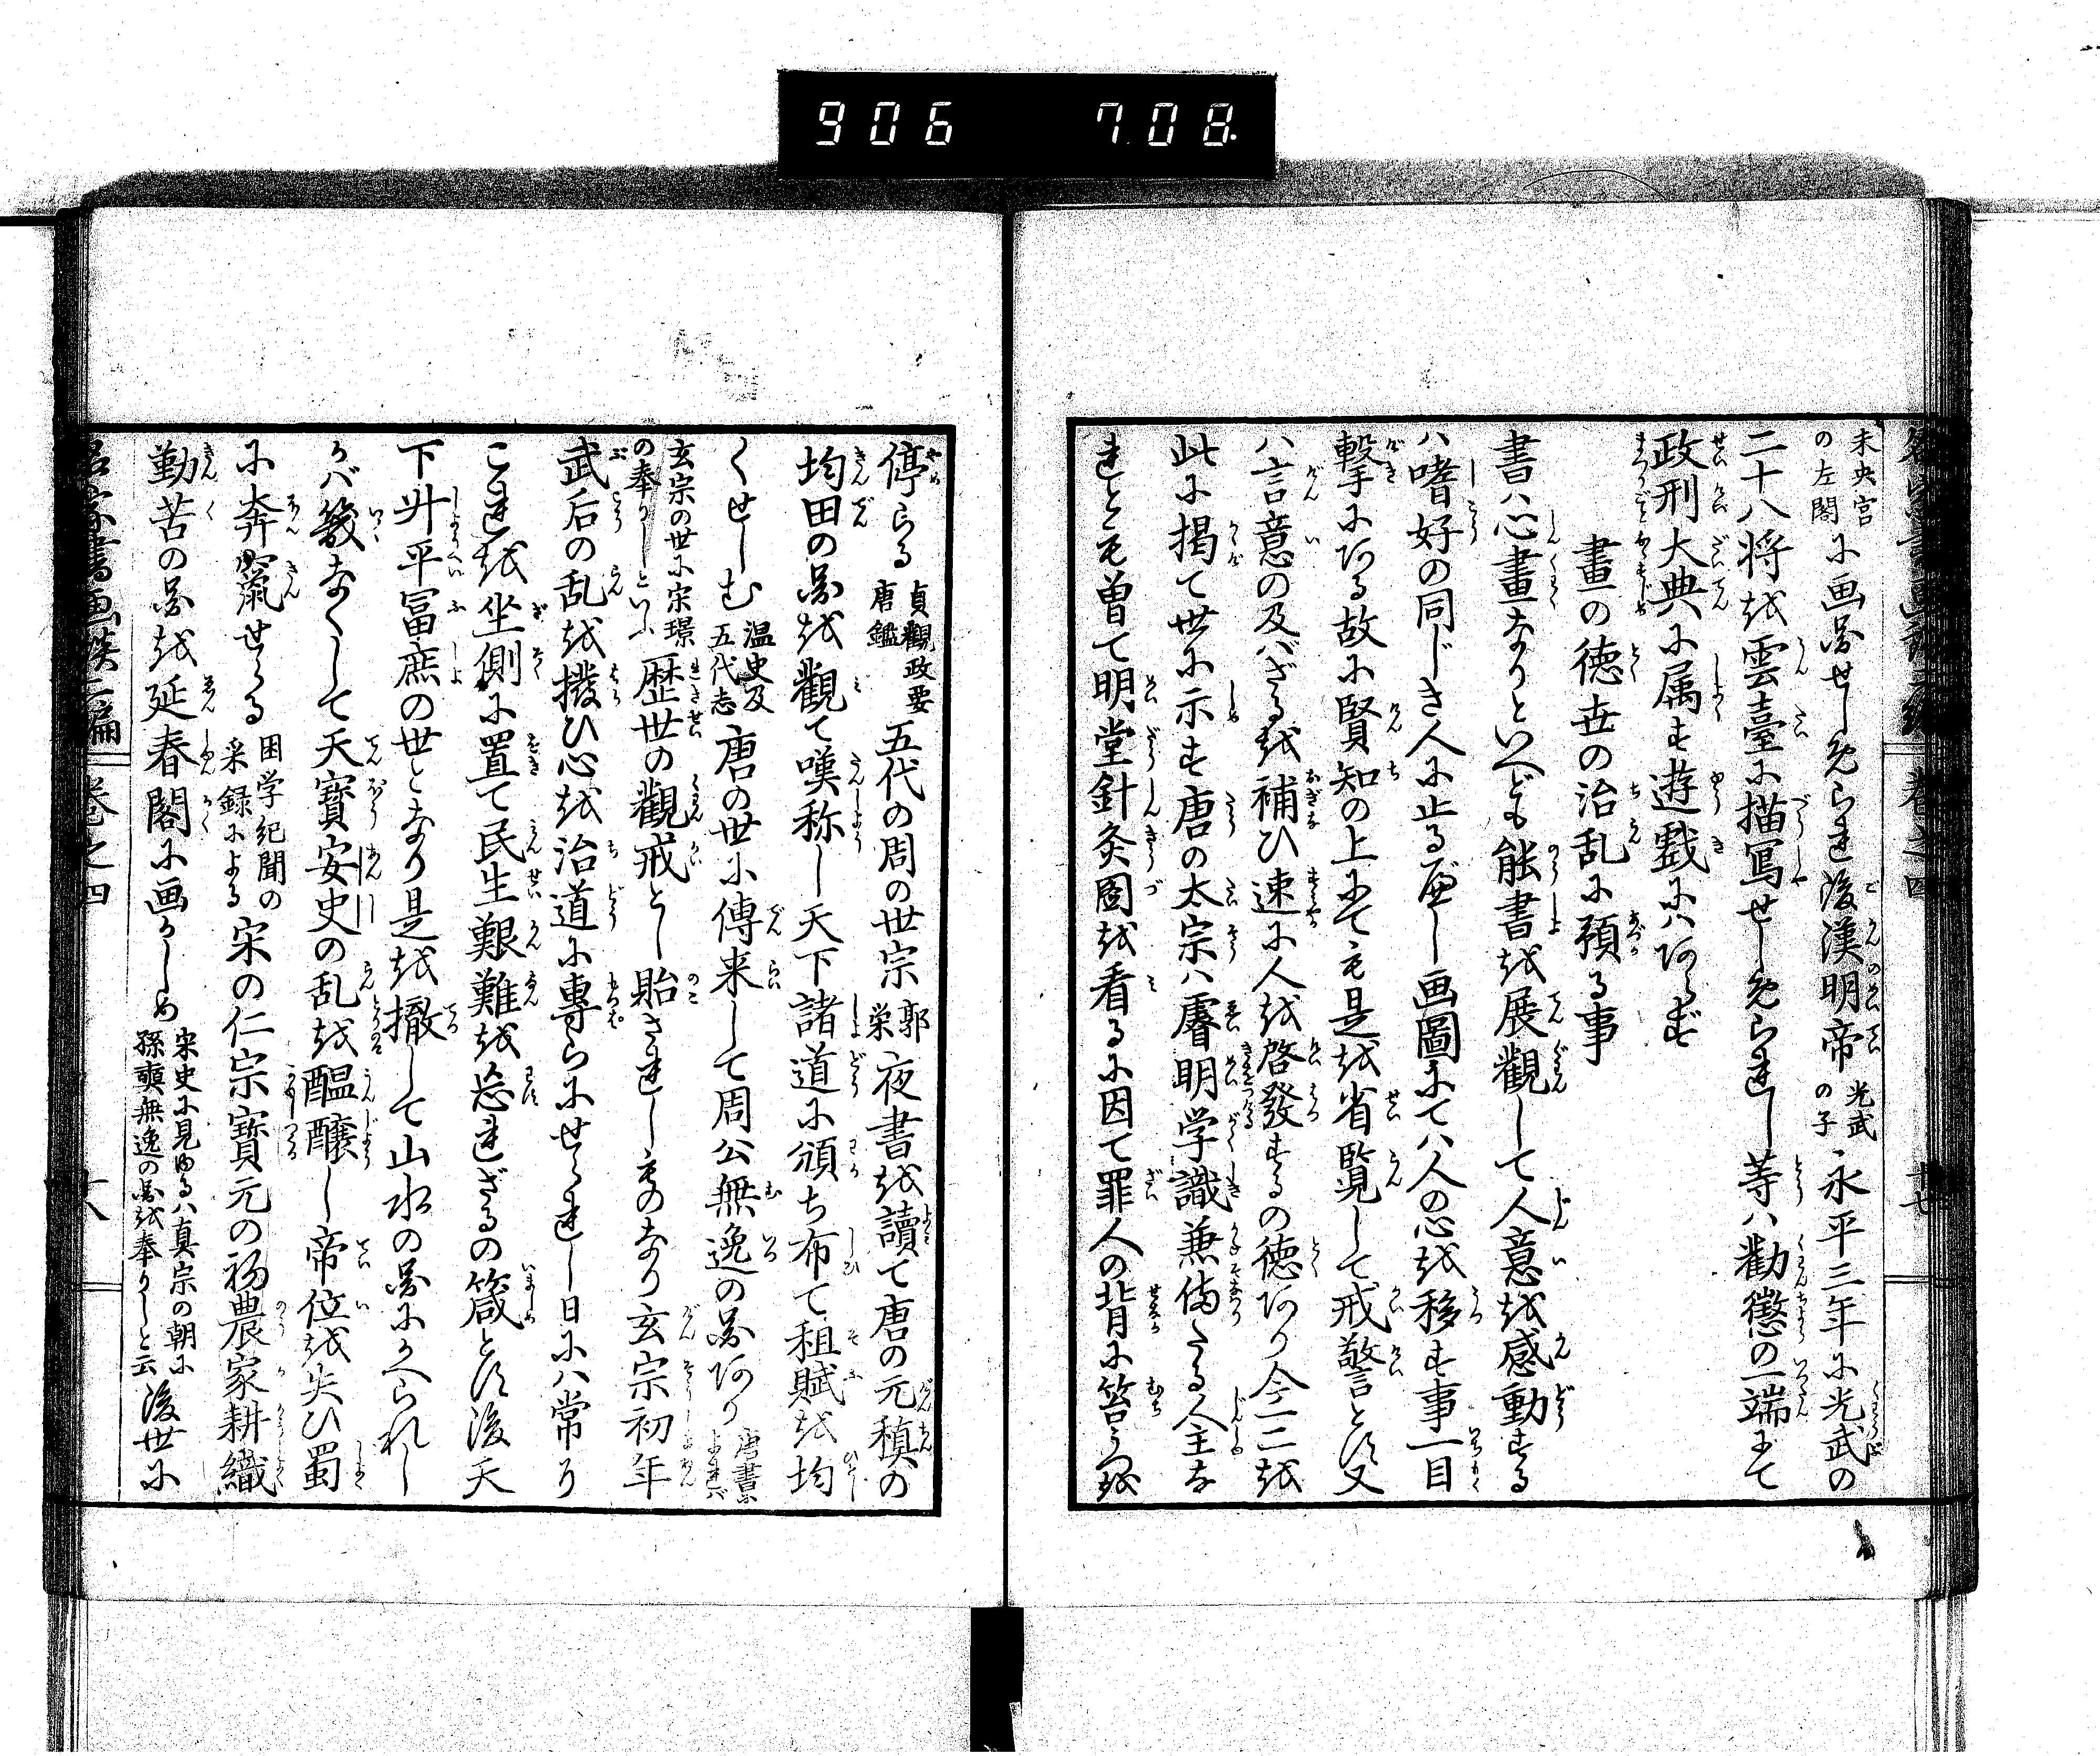 906 708
未央宮の左閣に画圖せしめられ後漢明帝光武の子永平三年に光武の
二十八将を雲臺に描写せしめられし等ハ勸懲の一端にて
政刑大典に属す遊戯にハあらず
畫の徳世の治乱に預る事
書ハ心畫なりといへども能書を展觀して人意を感動する
ハ嗜好の同じき人に止る而已画圖にてハ人の心を移す事一目
撃にある故に賢知の上にても是を省覧して戒警とす又
ハ言意の及バざるを補ひ速に人を啓發するの徳あり今一二を
此に掲て世に示す唐の太宗ハ睿明学識兼備たる人主な
れとも曽て明堂針灸圖を看るに因て罪人の背に笞うつを
停らる貞觀政要唐鑑五代の周の世宗郭栄夜書を讀て唐の元稹の
均田の圖を觀て嘆称し天下諸道に頒ち布て租賦を均
くせしむ温史及五代志唐の世に傳来して周公無逸の圖あり唐書によれバ
玄宗の世に宋璟の奉りしといふ歴世の觀戒とし貽されしものなり玄宗初年
武后の乱を撥ひ心を治道に專らにせられし日にハ常り
これを坐側に置て民生艱難を忘れざるの箴とす後天
下升平冨庶の世となり是を撤して山水の圖にかへられし
かバ幾なくして天寳安史の乱を醞醸し帝位を失ひ蜀
に奔竄せらる困学紀聞の采録による宋の仁宗寳元の初農家耕織
勤苦の圖を延春閣に画かしめ宋史に見ゆるハ真宗の朝に孫奭無逸の圖を奉りしと云後世に
名家書画談二編 巻之四